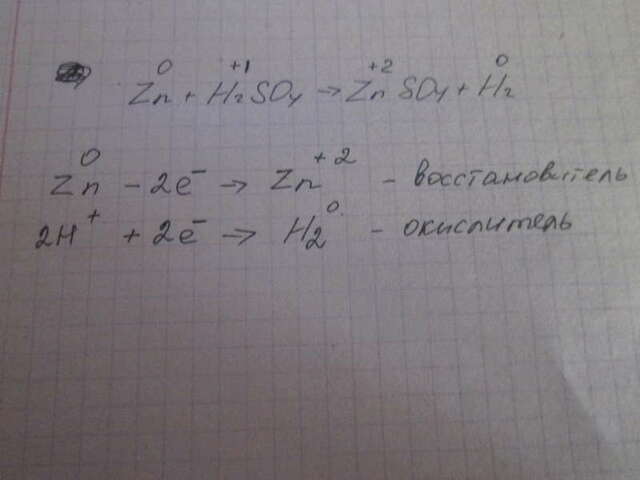 Zn⁰ + H₂⁺¹SO₄ → Zn⁺²SO₄ + H₂⁰
Zn⁰ - 2e⁻ → Zn⁺² - восстановитель
2H⁺ + 2e⁻ → H₂⁰ - окислитель